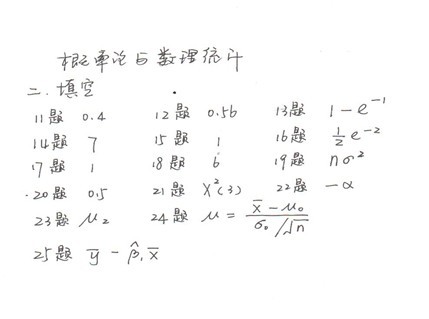 概率论与数理统计
二.填空
11题 0.4 12题 0.56 13题 1-e⁻¹
14题 7 15题 1 16题 ½e⁻²
17题 1 18题 6 19题 nσ²
20题 0.5 21题 X²(3) 22题 -α
23题 μ₂ 24题 μ = (x̄-μ₀)/(σ₀/√n)
25题 ȳ - β̂₁x̄